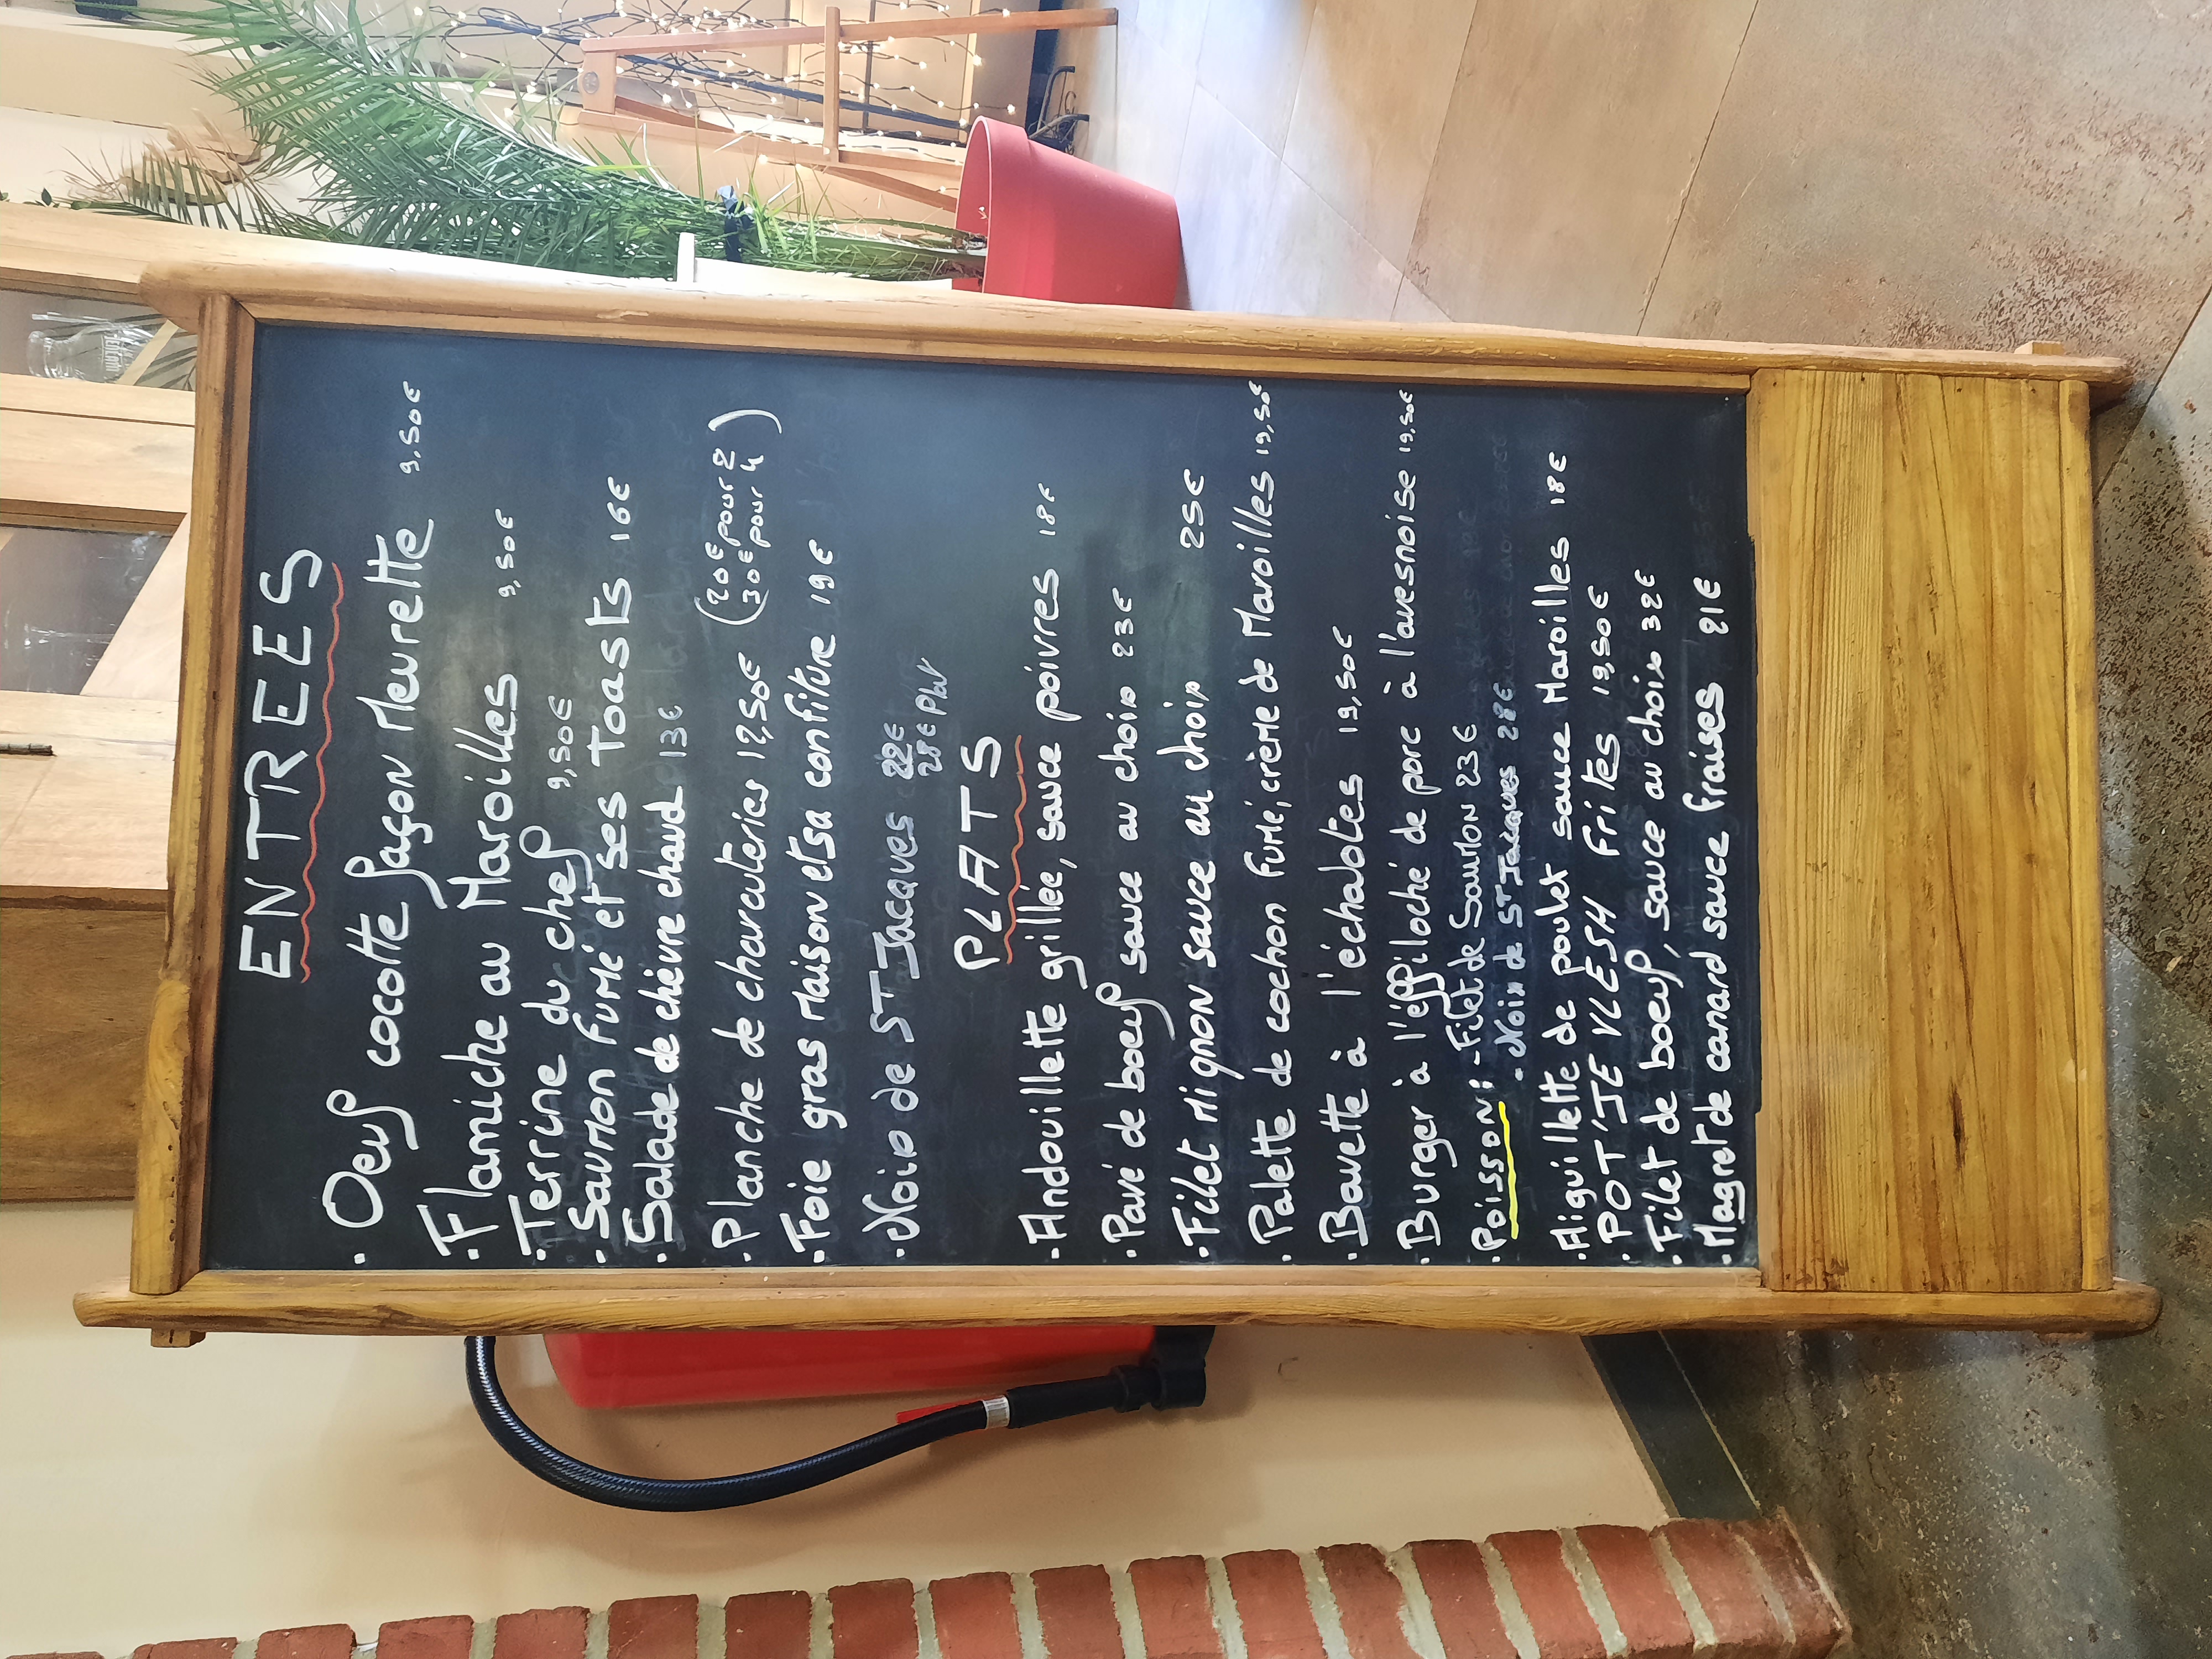 ENTREES
. Oeuf cocotte façon Meurette 9,50€
. Flamiche au Maroilles 9,50€
. Terrine du chef 9,50€
. Saumon fumé et ses Toasts 16€
. Salade de chèvre chaud 13€
. Planche de charcuteries 12,50€ (20€ pour 2
30€ pour 4)
. Foie gras maison et sa confiture 19€
. Noix de ST Jacques 22€
28€ Plat
PLATS
. Andouillette grillée, sauce poivres 18€
. Pavé de boeuf sauce au choix 23€
. Filet mignon sauce au choix 25€
. Palette de cochon fumé, crème de Maroilles 19,50€
. Bavette à l'échalotes 19,50€
. Burger à l'éffiloché de porc à l'avesnoise 19,50€
. Poisson: - Filet de Saumon 23€
- Noix de ST Jacques 28€
. Aiguillette de poulet sauce Maroilles 18€
. POT'JE VLESH Frites 19,50€
. Filet de boeuf, sauce au choix 32€
. Magret de canard sauce fraises 21€